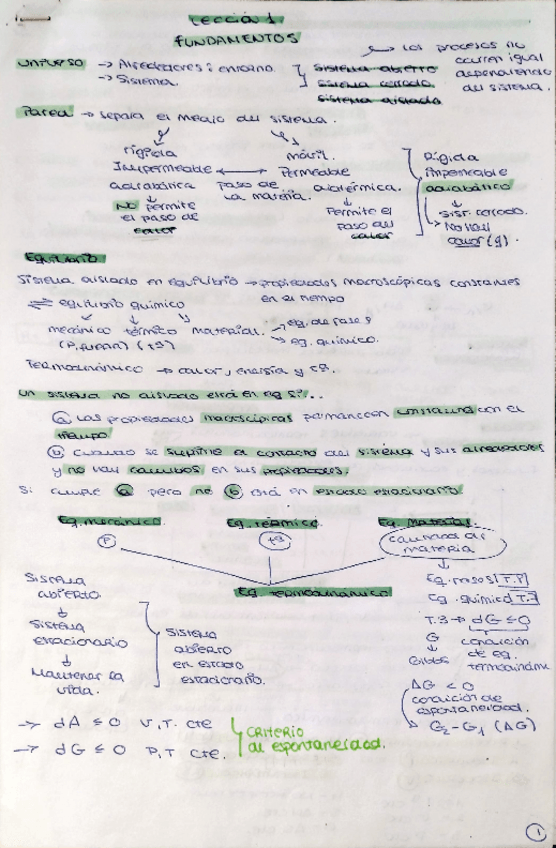 LECCIÓN 1
FUNDAMENTOS
UNIVERSO → Alrededores: entorno.
→ Sistema.
Sistema abierto
Sistema cerrado
Sistema aislado
→ Los procesos no
ocurren igual
dependiendo
del sistema.
Pared → separa el medio del sistema.
rígida
Impermeable
adiabática
NO permite
el paso de
calor
móvil.
Permeable
diatérmica.
paso de
la materia.
Permite el
paso del
calor
Rígida
Impermeable
adiabática
sist. cerrado.
No hay
calor (q).
Equilibrio
Sistema aislado en equilibrio → propiedades macroscópicas constantes
en el tiempo
⇌ equilibrio químico
mecánico térmico material.
→ eq. de fases
→ eq. químico.
Termodinámico → calor, energía y
Un sistema no aislado está en eq si...
(a) Las propiedades macroscópicas permanecen constantes con el
tiempo
(b) cuando se suprime el contacto del sistema y sus alrededores
y no hay cambios en sus propiedades.
Si cumple (a) pero no (b) está en estado estacionario
Eq. mecánico Eq. térmico Eq. Material
P
cantidad de
materia
Eq. termodinámico
Sistema
abierto
↓
Sistema
estacionario
↓
Mantener la
vida.
Sistema
abierto
en estado
estacionario.
Eq. fases T.P
Eq. químico T.
T.3 → dG ≤ 0
G
↓
Gibbs
condición
de eq.
ΔG < 0
condición de
espontaneidad.
G₂-G₁ (ΔG)
→ dA ≤ 0 V, T. cte
→ dG ≤ 0 P, T cte.
CRITERIO
de espontaneidad.
1